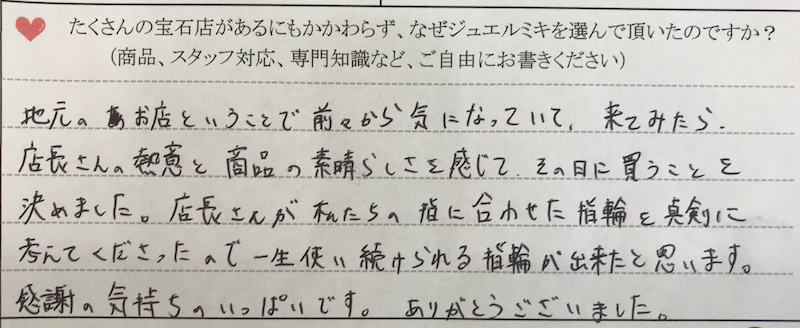 たくさんの宝石店があるにもかかわらず、なぜジュエルミキを選んで頂いたのですか？
(商品、スタッフ対応、専門知識など、ご自由にお書きください)
地元のお店ということで前々から気になっていて、来てみたら、
店長さんの熱意と商品の素晴らしさを感じて、その日に買うことを
決めました。店長さんが私たちの指に合わせた指輪を真剣に
考えてくださったので一生使い続けられる指輪が出来たと思います。
感謝の気持ちのいっぱいです。ありがとうございました。